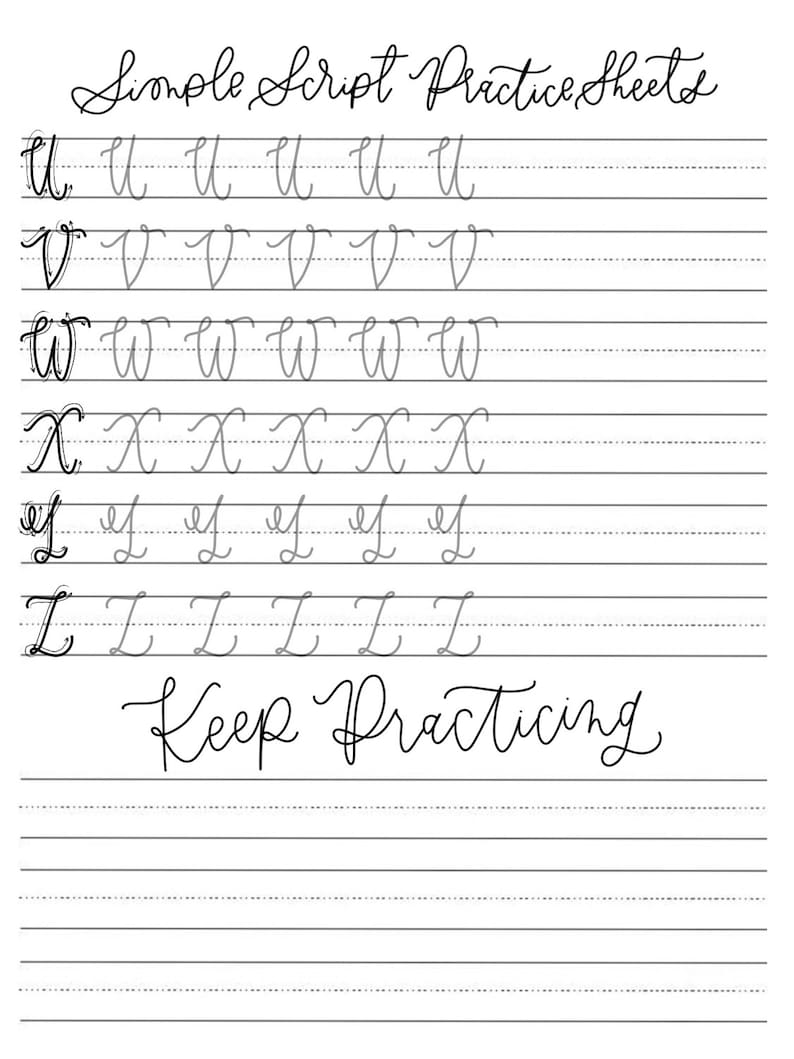 Simple Script Practice Sheets
U U U U U U
V V V V V V
W W W W W W
X X X X X X
Y Y Y Y Y Y
Z Z Z Z Z Z
Keep Practicing